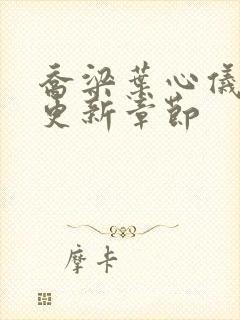 喬梁葉心儀
更新章節
摩卡